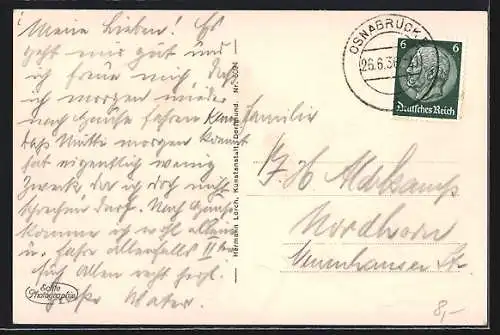 Meine Lieben! Es
geht mir gut und
ich freue mich daß
ich morgen wieder
nach Hause fahren kann
daß Mutti morgen kommt
hat eigentlich wenig
Zweck da ich doch nicht
sprechen darf. Nach Hause
komme ich wohl allein
u. fahre allenfalls II.
Euch Allen recht herzl.
Grüße Vater.
Echte
Photographie
Hermann Lorch, Kunstanstalt, Dortmund. Nr.
OSNABRÜCK
26.6.36
6 6
Deutsches Reich
Familie
H
Nordhorn
Str.
8,-